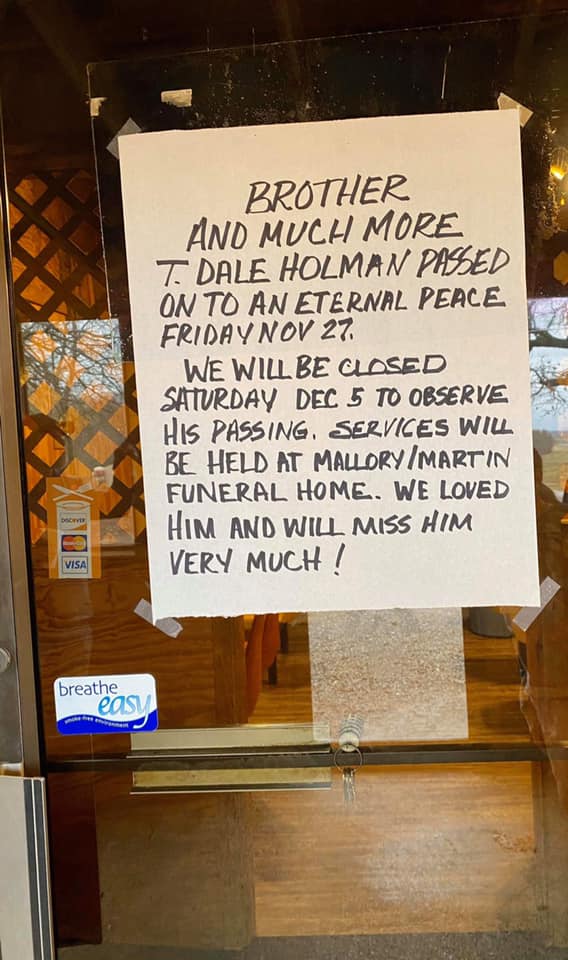 BROTHER
AND MUCH MORE
T. DALE HOLMAN PASSED
ON TO AN ETERNAL PEACE
FRIDAY NOV 27.
WE WILL BE CLOSED
SATURDAY DEC 5 TO OBSERVE
HIS PASSING. SERVICES WILL
BE HELD AT MALLORY/MARTIN
FUNERAL HOME. WE LOVED
HIM AND WILL MISS HIM
VERY MUCH!
DISCOVER
MasterCard
VISA
breathe
easy
smoke-free environment